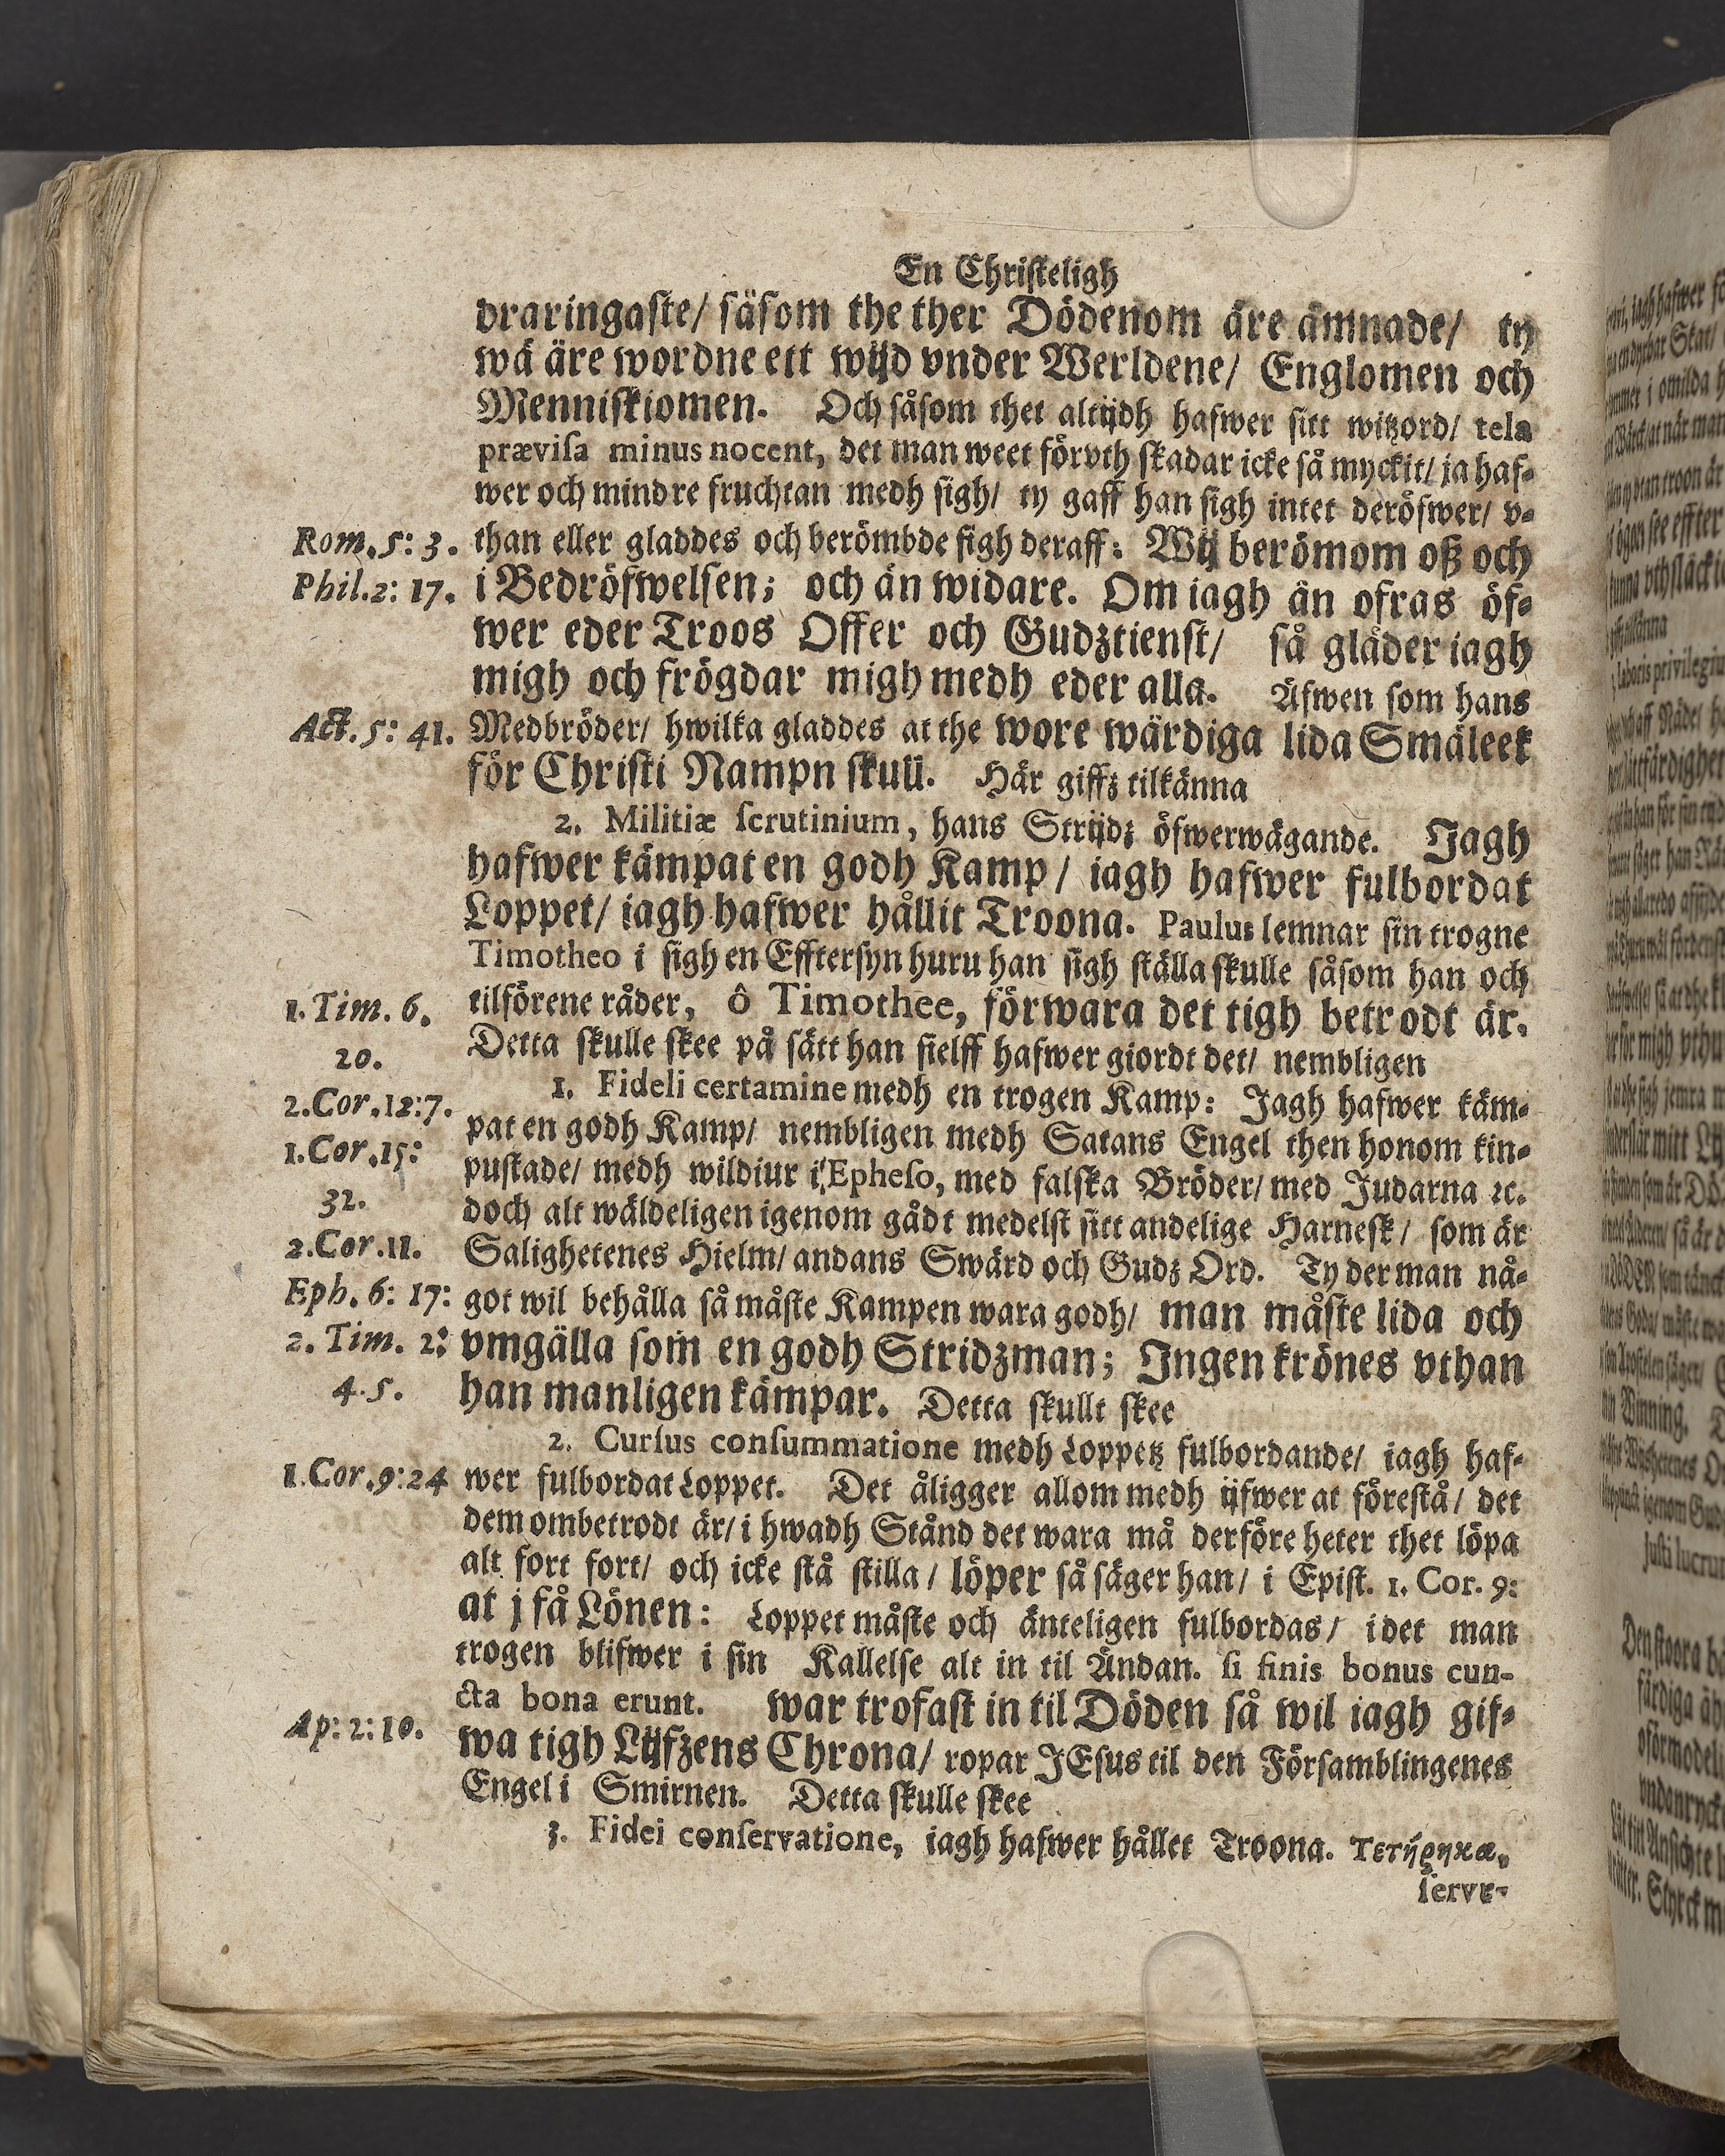 En Christeligh
draringaste/ såsom the ther Dödenom äre ämnade/ ty
wå äre wordne ett wijd vnder Werldene/ Englomen och
Menniskiomen. Och såsom thet altijdh hafwer sitt witzord/ tela
prævisa minus nocent, det man weet förvth skadar icke så myckit/ ja haf-
wer och mindre fruchtan medh sigh/ ty gaff han sigh intet deröfwer/ v-
Rom. 5: 3. than eller gladdes och berömbde sigh deraff: Wij berömom oß och
Phil. 2: 17. i Bedröfwelsen; och än widare. Om iagh än ofras öf-
wer eder Troos Offer och Gudztienst/ så gläder iagh
migh och frögdar migh medh eder alla. Äfwen som hans
Act. 5: 41. Medbröder/ hwilka gladdes at the wore wärdiga lida Smäleek
för Christi Nampn skull. Här giffz tilkänna
2. Militiæ scrutinium, hans Strijdz öfwerwägande. Jagh
hafwer kämpat en godh Kamp/ iagh hafwer fulbordat
Loppet/ iagh hafwer hållit Troona. Paulus lemnar sin trogne
Timotheo i sigh en Efftersyn huru han sigh ställa skulle såsom han och
1. Tim. 6. tilförene råder, ô Timothee, förwara det tigh betrodt är.
20. Detta skulle skee på sätt han sielff hafwer giordt det/ nembligen
1. Fideli certamine medh en trogen Kamp: Jagh hafwer käm-
2. Cor. 12:7. pat en godh Kamp/ nembligen medh Satans Engel then honom kin-
1. Cor. 15: pustade/ medh wildiur i Epheso, med falska Bröder/ med Judarna ꝛc.
32. doch alt wäldeligen igenom gådt medelst sitt andelige Harnesk/ som är
2. Cor. 11. Salighetenes Hielm/ andans Swärd och Gudz Ord. Ty der man nå-
Eph. 6: 17: got wil behålla så måste Kampen wara godh/ man måste lida och
2. Tim. 2: vmgälla som en godh Stridzman; Ingen krönes vthan
4. 5. han manligen kämpar. Detta skullt skee
2. Cursus consummatione medh Loppetz fulbordande/ iagh haf-
1. Cor. 9: 24 wer fulbordat Loppet. Det åligger allom medh ijfwer at förestå/ det
dem ombetrodt är/ i hwadh Stånd det wara må derföre heter thet löpa
alt fort fort/ och icke stå stilla/ löper så säger han/ i Epist. 1. Cor. 9:
at j få Lönen: Loppet måste och änteligen fulbordas/ idet man
trogen blifwer i sin Kallelse alt in til Ändan. si finis bonus cun-
cta bona erunt. war trofast in til Döden så wil iagh gif-
Ap: 2: 10. wa tigh Lijfzens Chrona/ ropar JEsus til den Församblingenes
Engel i Smirnen. Detta skulle skee
3. Fidei conservatione, iagh hafwer hållet Troona. Τετήρηκα,
serve-